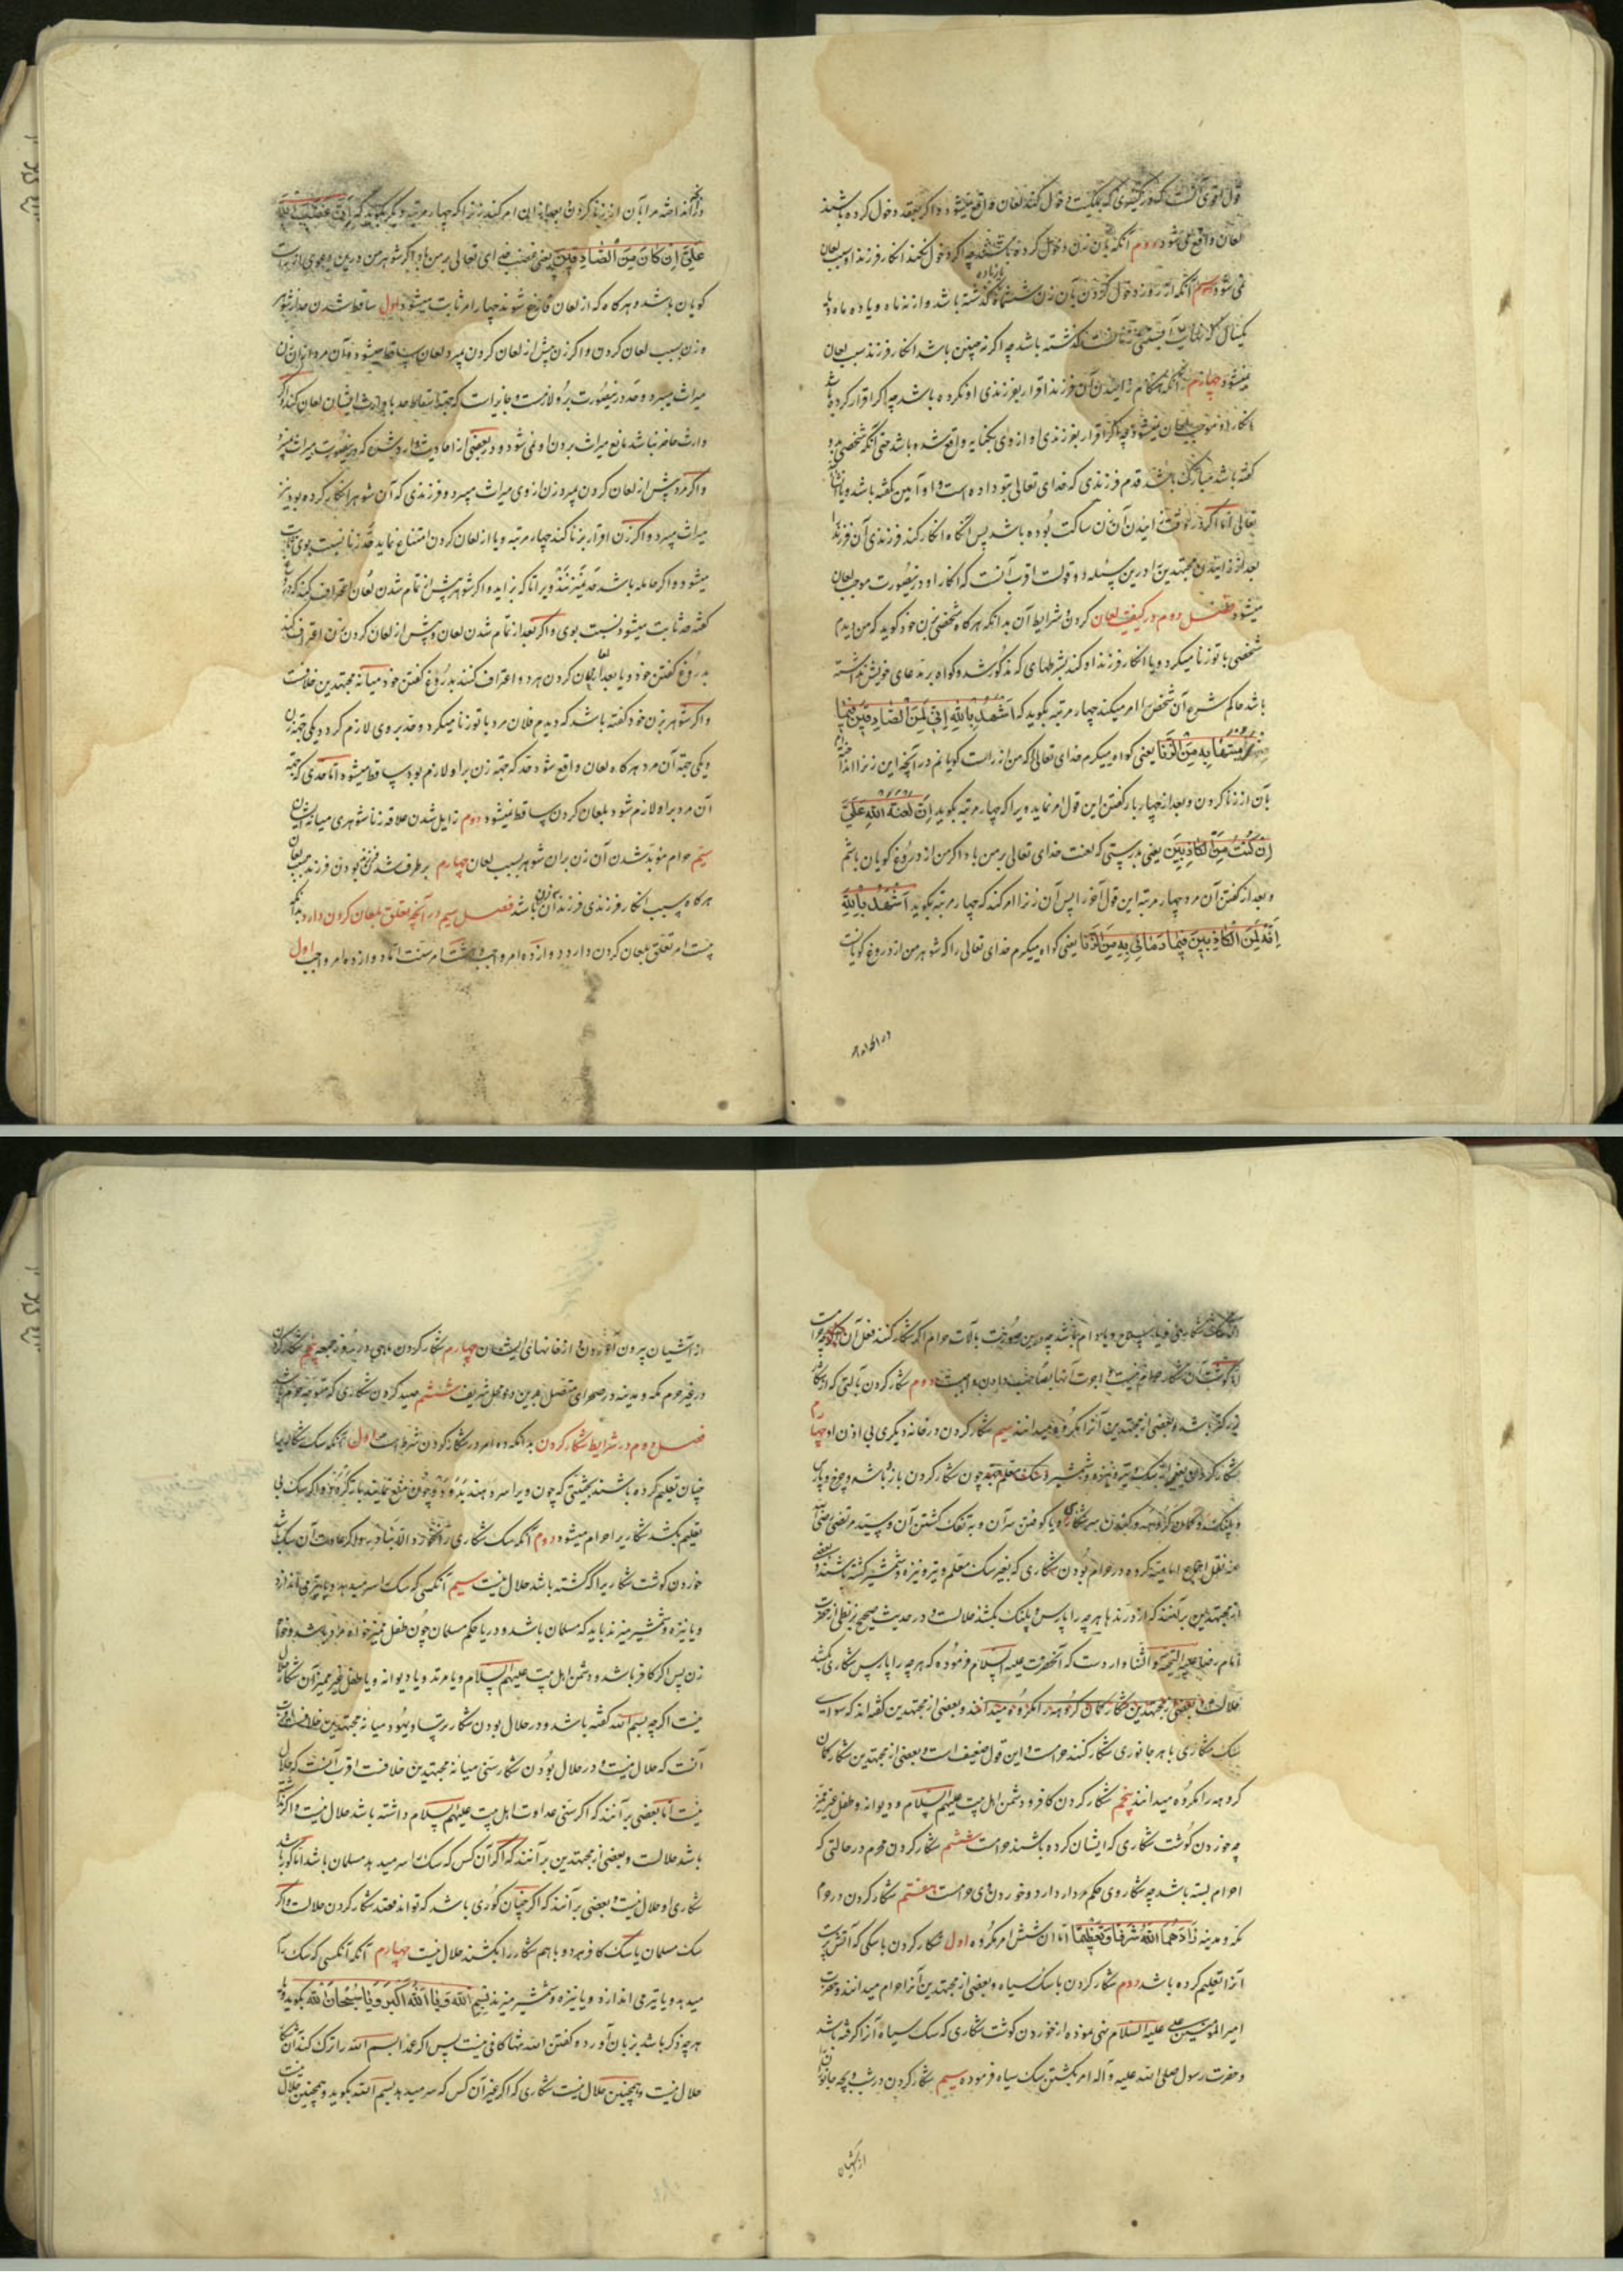 دخول کنند لعان واقع میشود و اگر بعقد دخول کرده باشند
لعان واقع نمی شود دوم آنکه بآن زن دخول کرده باشد چه اگر دخول نکند انکار فرزند او سبب لعان
نمی شود سیم آنکه از روز دخول کردن بآن زن ششماه گذشته باشد و از نه ماه و یا ده ماه و یا
یکسال که گذشته باشد چه اگر نه چنین باشد انکار فرزند سبب لعان
نمیشود چهارم آنکه هنگام زائیدن آن فرزند اقرار بفرزندی او نکرده باشد چه اگر اقرار کرده باشد
انکار او موجب لعان نمیشود و چه اگر اقرار بفرزندی او ازوی بکنایه واقع شده باشد حتی آنکه شخصی باو
گفته باشد مبارک باشد قدم فرزندی که خدای تعالی بتو داده است و او آمین گفته باشد ویا انشاالله
تعالی امّا اگر در وقت زائیدن آن زن ساکت بوده باشد پس آنگاه انکار کند فرزندی آن فرزند را
بعد از زائیدن مجتهدین را درین مسئله دو قولست اقرب آنست که انکار او درینصورت موجب لعان
میشود فصل دوم در کیفیت لعان کردن و شرایط آن بدانکه هرگاه شخصی بزن خود گوید که من دیدم
شخصی با تو زنا میکرد ویا انکار فرزند او کند بشرطهای که مذکور شد و گواه بر مدعای خویش نداشته
باشد حاکم شرع آن شخص را امر میکند چهار مرتبه بگوید که اَشْهَدُ بِاللّهِ اِنّی لَمِنَ الصّادِقینَ فیما
رَمَیْتُها بِهِ مِنَ الزِّنا یعنی گواه میگیرم خدای تعالی را که من از راست گویانم در آنچه این زن را انداختم
بآن از زنا کردن و بعد از چهار بار گفتن این قول امر نماید ویرا که چهار مرتبه بگوید اِنَّ لَعْنَةَ اللّهِ عَلَیَّ
اِنْ کُنْتُ مِنَ الْکاذِبینَ یعنی بدرستی که لعنت خدای تعالی بر من باد اگر من از دروغ گویان باشم
و بعد از گفتن آن مرد چهار مرتبه این قول آخر را پس آن زن را امر کند که چهار مرتبه بگوید اَشْهَدُ بِاللّهِ
اِنَّهُ لَمِنَ الْکاذِبینَ فیما رَمانی بِهِ مِنَ الزِّنا یعنی گواه میگیرم خدای تعالی را که شوهر من از دروغ گویانست
در آنچه انداخته مرا بآن از زنا کردن بعد از این امر کند زن را که چهار مرتبه دیگر بگوید که اِنَّ غَضَبَ اللّهِ
عَلَیَّ اِنْ کانَ مِنَ الصّادِقینَ یعنی غضب خدای تعالی بر من باد اگر شوهر من درین دعوی از راست
گویان باشد و هرگاه که از لعان فارغ شوند چهار امر ثابت میشود اول ساقط شدن حد از شوهر
و زن بسبب لعان کردن و اگر زن پیش از لعان کردن بمیرد لعان ساقط میشود و آن مرد از آن زن
میراث میبرد و حد درینصورت برو لازمست و جایز است که جهة اسقاط حد با وارث ایشان لعان کند و اگر
وارث حاضر نباشد مانع میراث بردن او نمی شود و در بعضی از احادیث وارد شده که درینصورت میراث نمیبرد
و اگر مرد پیش از لعان کردن بمیرد زن از وی میراث میبرد و فرزندی که آن شوهر انکار کرده بود نیز
میراث میبرد و اگر زن اقرار بزنا کند چهار مرتبه ویا از لعان کردن امتناع نماید حد زنا نسبت بوی ثابت
میشود و اگر حامله باشد حد نمیزنند ویرا تا که بزاید و اگر شوهر پیش از تمام شدن لعان اعتراف کند که دروغ
گفته حد ثابت میشود نسبت بوی و اگر بعد از تمام شدن لعان و پیش از لعان کردن زن اعتراف کند
بدروغ گفتن خود و یا بعد از لعان کردن هر دو اعتراف کنند بدروغ گفتن خود میانه مجتهدین خلافست
و اگر شوهر بزن خود گفته باشد که دیدم فلان مرد با تو زنا میکرد دو حد بر وی لازم گردد یکی جهة زن
و یکی جهة آن مرد هرگاه لعان واقع شود حد که جهة زن بر او لازم بود ساقط میشود امّا حدی که جهة
آن مرد بر او لازم شود بلعان کردن ساقط نمیشود دوم زایل شدن علاقه زناشوهری میانه ایشان
سیم حرام مؤبد شدن آن زن بر آن شوهر بسبب لعان چهارم برطرف شدن فرزند بودن فرزند بسبب لعان
هرگاه بسبب انکار فرزندی فرزند آن زن باشد فصل سیم در آنچه تعلق بلعان کردن دارد بدانکه
بیست امر تعلق بلعان کردن دارد دوازده امر واجب و هشت امر سنت امّا دوازده امر واجب اول
در آنچه
ویا بدام باشد چه درین صورت بآلات حرام اگر شکار کنند فعل آن حرامست
امّا گوشت آن شکار حرام نیست و اجرت آنها بصاحب دادن واجبست دوم شکار کردن بآلتی که از شکار
بزرگتر باشد و بعضی از مجتهدین آنرا مکروه میدانند سیم شکار کردن در خانه دیگری بی اذن او چهارم
شکار کردن بغیر از سگ و تیر و نیزه و شمشیر و سگ معلم چون شکار کردن بباز و باشه و چرغ و پارس
و پلنگ و کمان گروهه و کندن سر شکاری ویا کوفتن سر آن و به تفک کشتن آن و سید مرتضی رضی الله
عنه نقل اجماع امامیه کرده در حرام بودن شکاری که بغیر سگ معلم و تیر و نیزه و شمشیر کشته باشند و بعضی
از مجتهدین برآنند که از درندها هر چه را پارس و پلنگ بکشد حلالست و در حدیث صحیح بزنطی از حضرت
امام رضا علیه التحیة و الثنا وارد است که آنحضرت علیه السلام فرموده که هر چه را پارس شکاری بکشد
حلالست و بعضی از مجتهدین شکار کمان گروهه را مکروه میدانند و بعضی از مجتهدین گفته اند که سوای
سگ شکاری با هر جانوری شکار کنند حرامست و این قول ضعیف است و بعضی از مجتهدین شکار کمان
گروهه را مکروه میدانند پنجم شکار کردن کافر و دشمن اهل بیت علیهم السلام و دیوانه و طفل غیر ممیز
چه خوردن گوشت شکاری که ایشان کرده باشند حرامست ششم شکار کردن محرم در حالتی که
احرام بسته باشد چه شکار وی حکم مردار دارد و خوردن وی حرامست هفتم شکار کردن در حرم
مکه و مدینه زادَهُمَا اللّهُ شَرَفاً وَ تَعْظیماً امّا آن شش امر مکروه اول شکار کردن با سگی که آتش پرست
آنرا تعلیم کرده باشد دوم شکار کردن با سگ سیاه و بعضی از مجتهدین آنرا حرام میدانند و حضرت
امیر المؤمنین علی علیه السلام نهی نموده از خوردن گوشت شکاری که سگ سیاه آنرا گرفته باشد
و حضرت رسول صلی الله علیه و آله امر بکشتن سگ سیاه فرموده سیم شکار کردن در شب و بچه جانوران
از آشیان
از آشیان بیرون آوردن و از خانهای ایشان چهارم شکار کردن ماهی در روز جمعه پنجم شکار کردن
در غیر حرم مکه و مدینه در صحرای متصل بحرمین در محل شریف ششم صید کردن شکاری که متوجه حرم باشد
فصل دوم در شرایط شکار کردن بدانکه ده امر در شکار کردن شرط است اول آنکه سگ شکاری را
چنان تعلیم کرده باشند بحیثیتی که چون ویرا سر دهند بدَود و چون منع نمایند باز گردد و اگر سگ بی
تعلیم بکشد شکار برا حرام میشود دوم آنکه سگ شکاری را نخورد الّا بنادر چه اگر عادت آن سگ باشد
خوردن گوشت شکار برا که کشته باشد حلال نیست سیم آنکسی که سگ را سر میدهد ویا تیر می اندازد
ویا نیزه و شمشیر میزند باید که مسلمان باشد و در یا حکم مسلمان چون طفل ممیز خواه مرد باشد و خواه
زن پس اگر کافر باشد و دشمن اهل بیت علیهم السلام ویا مرتد ویا دیوانه ویا طفل غیر ممیز آن شکار حلال
نیست اگر چه بسم الله گفته باشد و در حلال بودن شکار ترسا و یهود میانه مجتهدین خلافست
آنست که حلال نیست و در حلال بودن شکار سنّی میانه مجتهدین خلافست اقرب آنست که حلال
نیست امّا بعضی برآنند که اگر سنّی عداوت اهل بیت علیهم السلام داشته باشد حلال نیست و اگر نداشته
باشد حلالست و بعضی از مجتهدین برآنند که اگر آن کس که سگ را سر میدهد مسلمان باشد امّا کور باشد
شکاری او حلال نیست و بعضی برآنند که اگر چنان کوری باشد که تواند قصد شکار کردن حلالست و اگر
سگ مسلمان با سگ کافر هر دو باهم شکار را بکشند حلال نیست چهارم آنکه آنکسی که سگ را سر
میدهد ویا تیر می اندازد ویا نیزه و شمشیر میزند بِسْمِ اللّه وَ یا اَللّهُ اَکْبَرْ وَ یا سُبْحانَ اللّه بگوید ویا
هر چه ذکر باشد بزبان آورد و گفتن الله تنها کافی نیست پس اگر عمدا بسم الله را ترک کند آن شکار
حلال نیست و همچنین حلال نیست شکاری که اگر غیر آن کس که سر میدهد بسم الله بگوید و همچنین حلال نیست